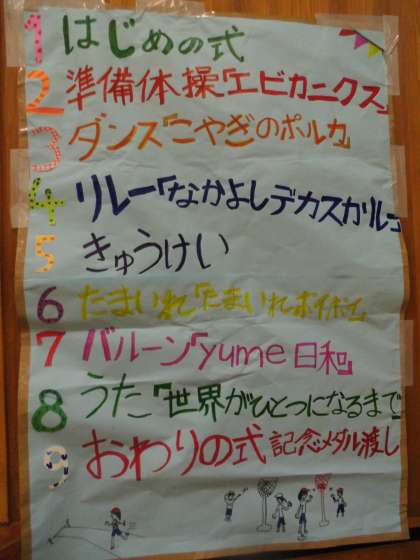 1 はじめの式
2 準備体操「エビカニクス」
3 ダンス「こやぎのポルカ」
4 リレー「なかよしデカスカルコ
5 きゅうけい
6 たまいれ「たまいれポイポイ」
7 バルーン「yume日和」
8 うた「世界がひとつになるまで」
9 おわりの式 記念メダル渡し